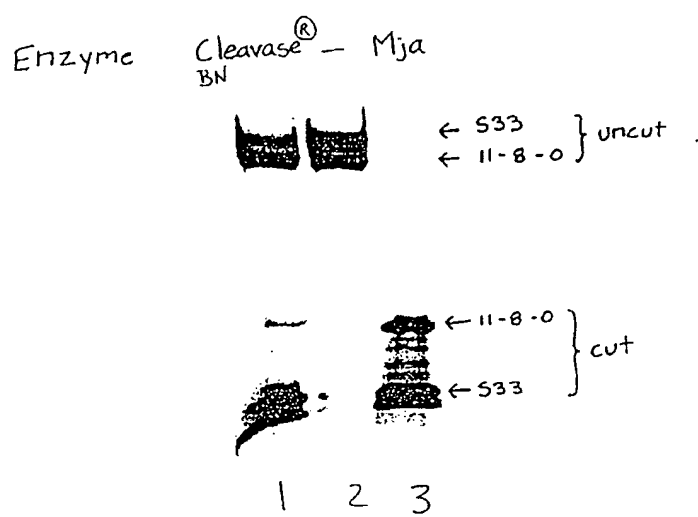 Enzyme Cleavase® - Mja
BN
← S33
← 11-8-0
} uncut
← 11-8-0
← S33
} cut
1 2 3